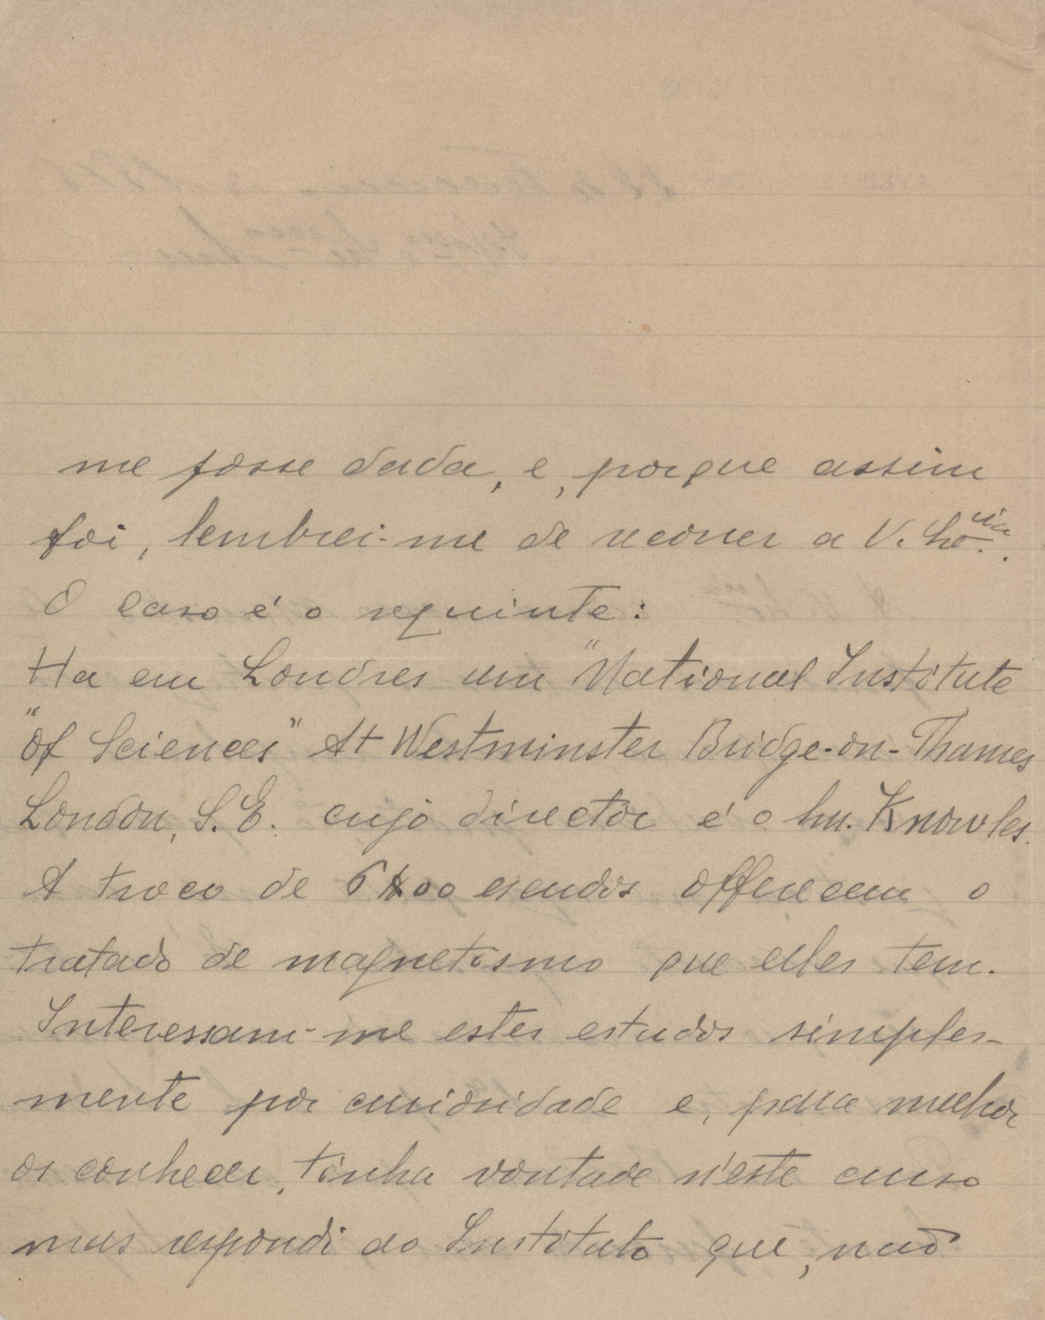 me fosse dada, e, porque assim
foi, lembrei-me de recorrer a V.
O caso é o seguinte:
Ha em Londres um "National Institute
"of Sciences" At Westminster Bridge-on-Thames
London, S.E. cujo director é o Snr. Knowles.
A troco de escudos offerecem o
tratado de magnetismo que elles tem.
Interessam-me estes estudos simples-
mente por curiosidade e, para melhor
os conhecer, tinha vontade n'este curso
mas respondi ao Instituto que, não